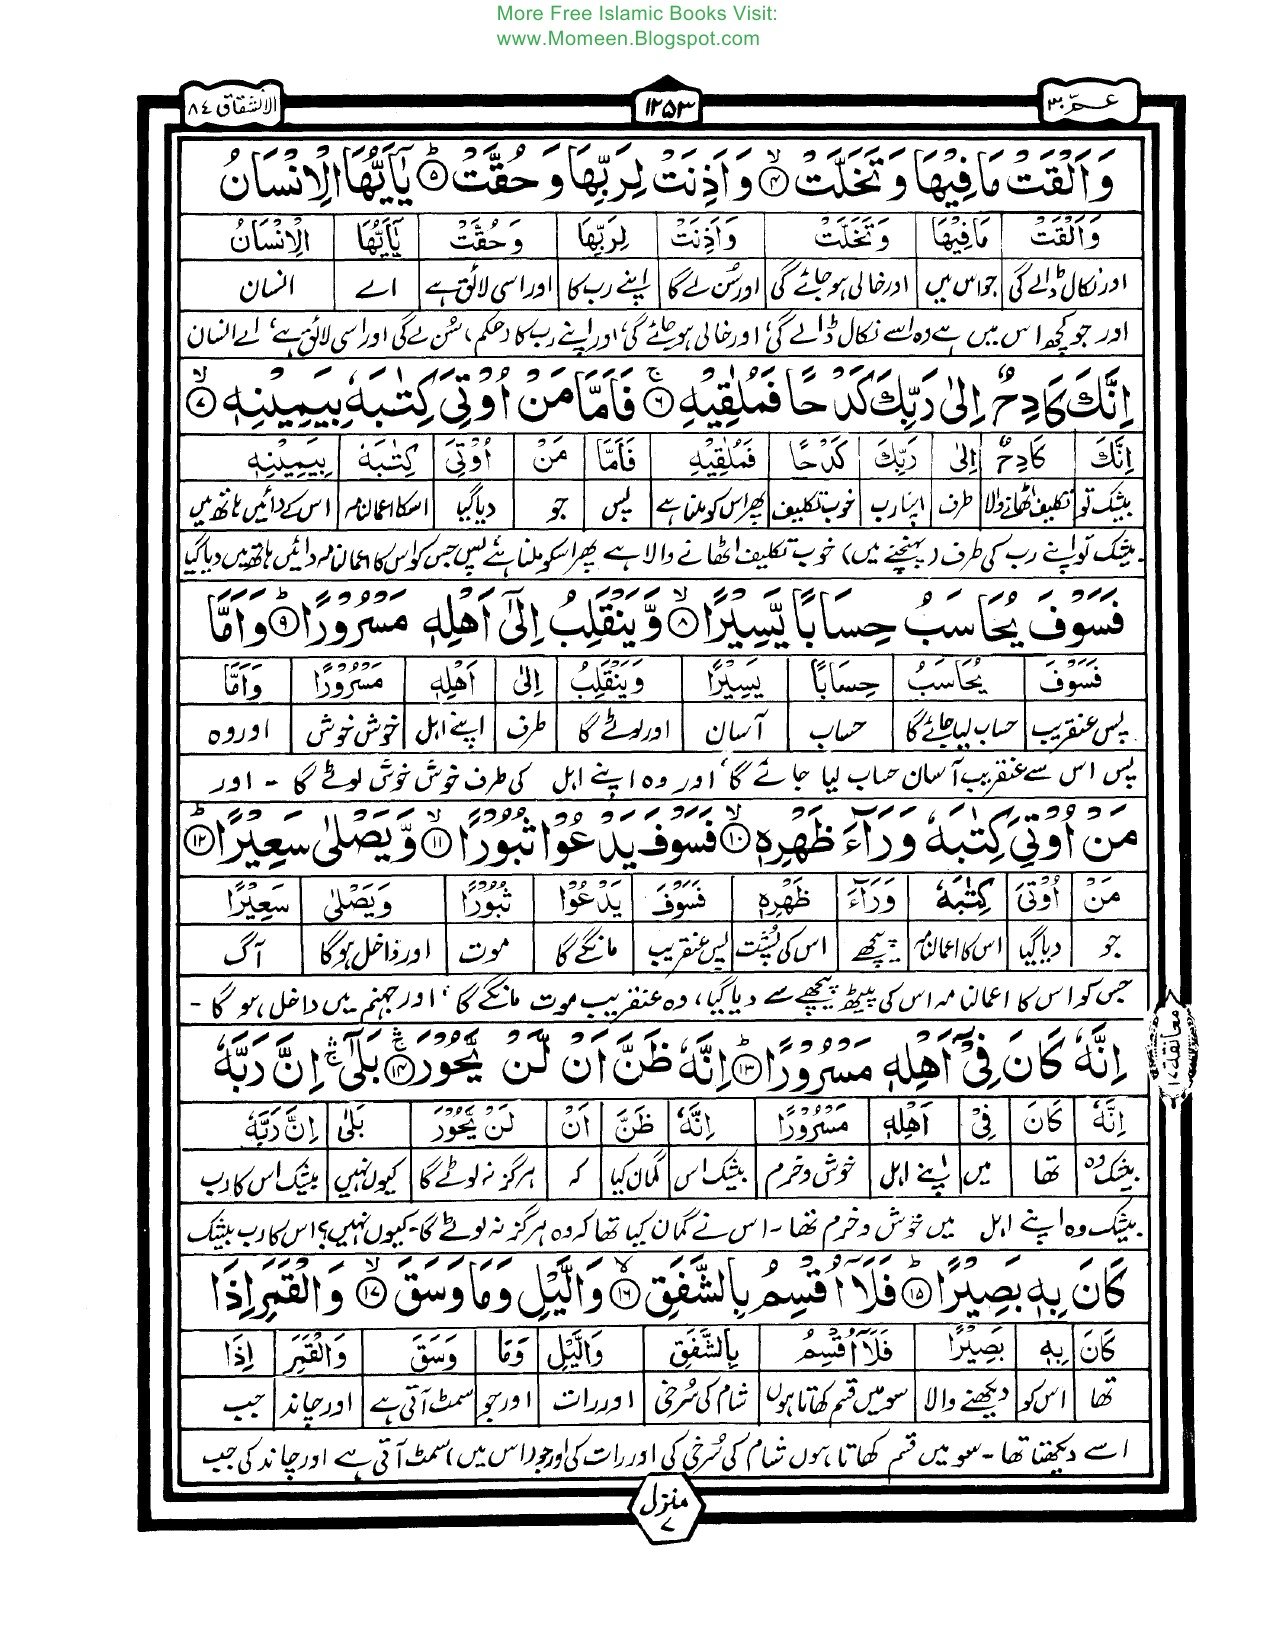 More Free Islamic Books Visit:
www.Momeen.Blogspot.com
عمّ ۳۰
۱۲۵۳
الانشقاق ۸٤
وَاَلْقَتْ مَا فِيْهَا وَ تَخَلَّتْ ۙ۝۴ وَاَذِنَتْ لِرَبِّهَا وَ حُقَّتْ ؕ۝۵ يٰۤاَيُّهَا الْاِنْسَانُ
وَاَلْقَتْ مَا فِيْهَا وَ تَخَلَّتْ وَاَذِنَتْ لِرَبِّهَا وَحُقَّتْ يٰۤاَيُّهَا الْاِنْسَانُ
اور نکال ڈالے گی جو اس میں اور خالی ہو جائے گی اور سُن لے گا اپنے رب کا اور اسی لائق ہے اے انسان
اور جو کچھ اس میں ہے وہ اسے نکال ڈالے گی، اور خالی ہو جائے گی، اور اپنے رب کا (حکم) سُن لے گی اور اسی لائق ہے، اے انسان
اِنَّكَ كَادِحٌ اِلٰى رَبِّكَ كَدْحًا فَمُلٰقِيْهِ ۚ۝۶ فَاَمَّا مَنْ اُوْتِيَ كِتٰبَهٗ بِيَمِيْنِهٖ ۙ۝۷
اِنَّكَ كَادِحٌ اِلٰى رَبِّكَ كَدْحًا فَمُلٰقِيْهِ فَاَمَّا مَنْ اُوْتِيَ كِتٰبَهٗ بِيَمِيْنِهٖ
بیشک تو تکلیف اٹھانے والا طرف اپنا رب خوب تکلیف پھر اس کو ملنا ہے پس جو دیا گیا اسکا اعمالنامہ اس کے دائیں ہاتھ میں
بیشک تو اپنے رب کی طرف (پہنچنے میں) خوب تکلیف اٹھانے والا ہے پھر اسکو ملنا ہے پس جس کو اس کا اعمالنامہ دائیں ہاتھ میں دیا گیا
فَسَوْفَ يُحَاسَبُ حِسَابًا يَّسِيْرًا ۙ۝۸ وَّيَنْقَلِبُ اِلٰۤى اَهْلِهٖ مَسْرُوْرًا ؕ۝۹ وَاَمَّا
فَسَوْفَ يُحَاسَبُ حِسَابًا يَسِيْرًا وَيَنْقَلِبُ اِلٰى اَهْلِهٖ مَسْرُوْرًا وَاَمَّا
پس عنقریب حساب لیا جائے گا حساب آسان اور لوٹے گا طرف اپنے اہل خوش خوش اور وہ
پس اس سے عنقریب آسان حساب لیا جائے گا، اور وہ اپنے اہل کی طرف خوش خوش لوٹے گا - اور
مَنْ اُوْتِيَ كِتٰبَهٗ وَرَآءَ ظَهْرِهٖ ۙ۝۱۰ فَسَوْفَ يَدْعُوْا ثُبُوْرًا ۙ۝۱۱ وَّيَصْلٰى سَعِيْرًا ؕ۝۱۲
مَنْ اُوْتِيَ كِتٰبَهٗ وَرَآءَ ظَهْرِهٖ فَسَوْفَ يَدْعُوْا ثُبُوْرًا وَيَصْلٰى سَعِيْرًا
جو دیا گیا اس کا اعمالنامہ پیچھے اس کی پشت پس عنقریب مانگے گا موت اور داخل ہو گا آگ
جس کو اس کا اعمالنامہ اس کی پیٹھ پیچھے سے دیا گیا، وہ عنقریب موت مانگے گا، اور جہنم میں داخل ہو گا -
اِنَّهٗ كَانَ فِيْۤ اَهْلِهٖ مَسْرُوْرًا ؕ۝۱۳ اِنَّهٗ ظَنَّ اَنْ لَّنْ يَّحُوْرَ ۚۛ۝۱۴ بَلٰۤى ۚۛ اِنَّ رَبَّهٗ
معانقة ۱۷
اِنَّهٗ كَانَ فِيْ اَهْلِهٖ مَسْرُوْرًا اِنَّهٗ ظَنَّ اَنْ لَنْ يَحُوْرَ بَلٰى اِنَّ رَبَّهٗ
بیشک وہ تھا میں اپنے اہل خوش و خرم بیشک اس گمان کیا کہ ہرگز نہ لوٹے گا کیوں نہیں بیشک اس کا رب
بیشک وہ اپنے اہل میں خوش و خرم تھا - اس نے گمان کیا تھا کہ وہ ہرگز نہ لوٹے گا - کیوں نہیں؟ اس کا رب بیشک
كَانَ بِهٖ بَصِيْرًا ؕ۝۱۵ فَلَاۤ اُقْسِمُ بِالشَّفَقِ ۙ۝۱۶ وَالَّيْلِ وَمَا وَسَقَ ۙ۝۱۷ وَالْقَمَرِ اِذَا
كَانَ بِهٖ بَصِيْرًا فَلَاۤ اُقْسِمُ بِالشَّفَقِ وَالَّيْلِ وَمَا وَسَقَ وَالْقَمَرِ اِذَا
تھا اس کو دیکھنے والا سو میں قسم کھاتا ہوں شام کی سُرخی اور رات اور جو سمٹ آتی ہے اور چاند جب
اسے دیکھتا تھا - سو میں قسم کھاتا ہوں شام کی سُرخی کی اور رات کی اور جو (اس میں) سمٹ آتی ہے اور چاند کی جب
منزل ۷